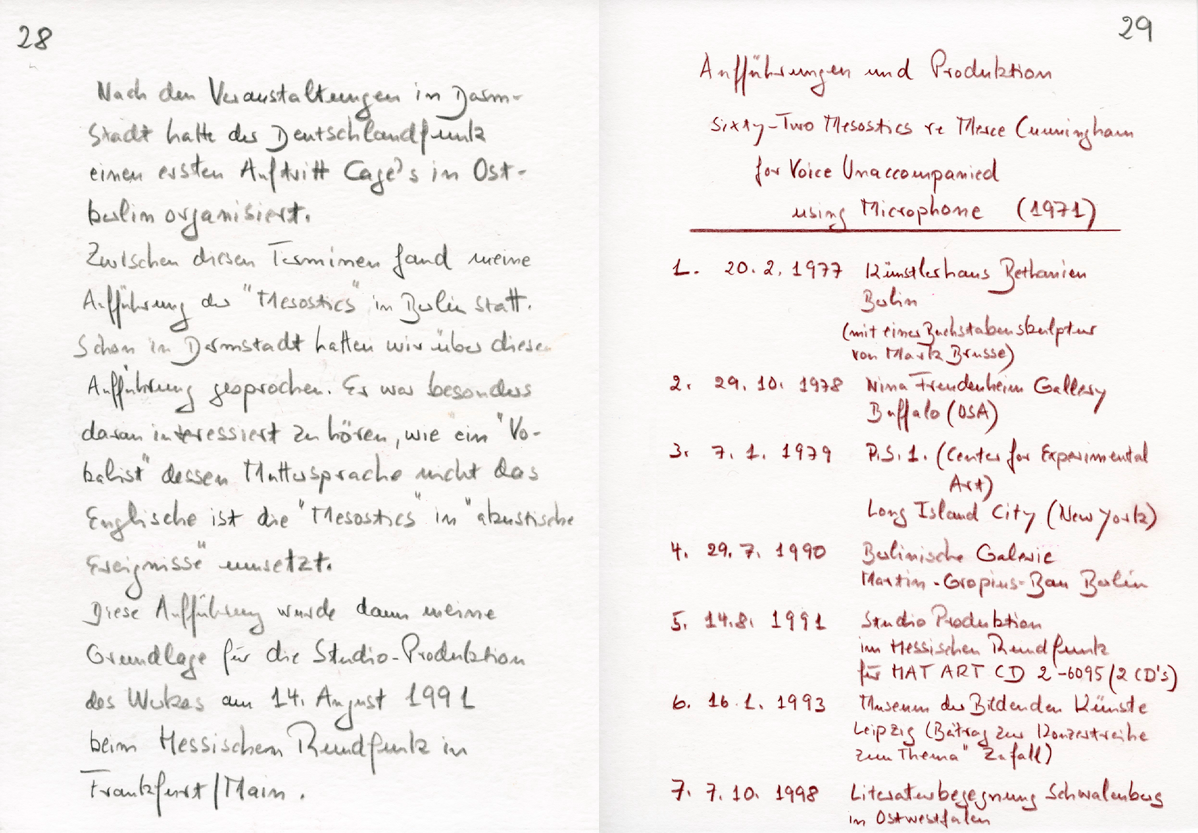 28
Nach den Veranstaltungen in Darm-
stadt hatte der Deutschlandfunk
einen ersten Auftritt Cage's in Ost-
berlin organisiert.
Zwischen diesen Terminen fand meine
Aufführung der "Mesostics" in Berlin statt.
Schon in Darmstadt hatten wir über diese
Aufführung gesprochen. Er war besonders
daran interessiert zu hören, wie ein "Vo-
kalist" dessen Muttersprache nicht das
Englische ist die "Mesostics" in "akustische
Ereignisse" umsetzt.
Diese Aufführung wurde dann meine
Grundlage für die Studio-Produktion
des Werkes am 14. August 1991
beim Hessischen Rundfunk in
Frankfurt/Main.
29
Aufführungen und Produktion
Sixty-Two Mesostics re Merce Cunningham
for Voice Unaccompanied
using Microphone (1971)
1. 20.2.1977 Künstlerhaus Bethanien
Berlin
(mit einer Buchstabenskulptur
von Mark Brusse)
2. 29.10.1978 Nina Freudenheim Gallery
Buffalo (USA)
3. 7.1.1979 P.S.1. (Center for Experimental
Art)
Long Island City (New York)
4. 29.7.1990 Berlinische Galerie
Martin-Gropius-Bau Berlin
5. 14.8.1991 Studio Produktion
im Hessischen Rundfunk
für HAT ART CD 2-6095 (2 CD's)
6. 16.1.1993 Museum der Bildenden Künste
Leipzig (Beitrag zur Konzertreihe
zum Thema "Zufall)
7. 7.10.1998 Literaturbegegnung Schwalenberg
in Ostwestfalen